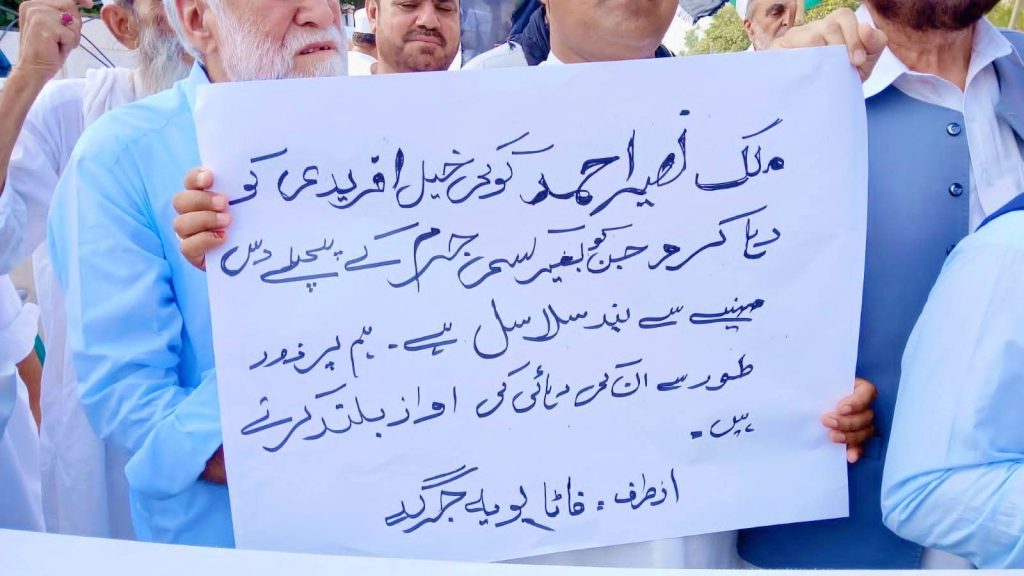 ملک نصیر احمد کوکی خیل افریدی کو
رہا کرو جن کو بغیر کسی جرم کے پچھلے دس
مہنیے سے پند سلاسل ہے۔ ہم پر زور
طور سے ان کی رہائی کی اواز بلند کرتے
ہیں۔
از طرف : فاٹا لویہ جرگہ